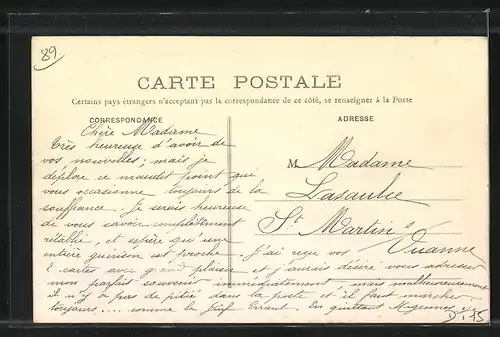 89
CARTE POSTALE
Certains pays étrangers n'acceptant pas la correspondance de ce côté, se renseigner à la Poste
CORRESPONDANCE
ADRESSE
Chère Madame
Très heureuse d'avoir de
vos nouvelles; mais je
déplore ce maudit point qui
vous occasionne toujours de la
souffrance. Je serais heureuse
de vous savoir complètement
rétablie, et espère que une
entière guérison est proche.
M Madame
Lasaulce
St Martin
J'ai reçu vos
2 cartes avec grand plaisir et j'aurais désiré vous adresser
mon parfait souvenir immédiatement mais malheureusement
il n'y a pas de pitié dans la poste et il faut marcher
toujours .... comme le Juif Errant. En quittant